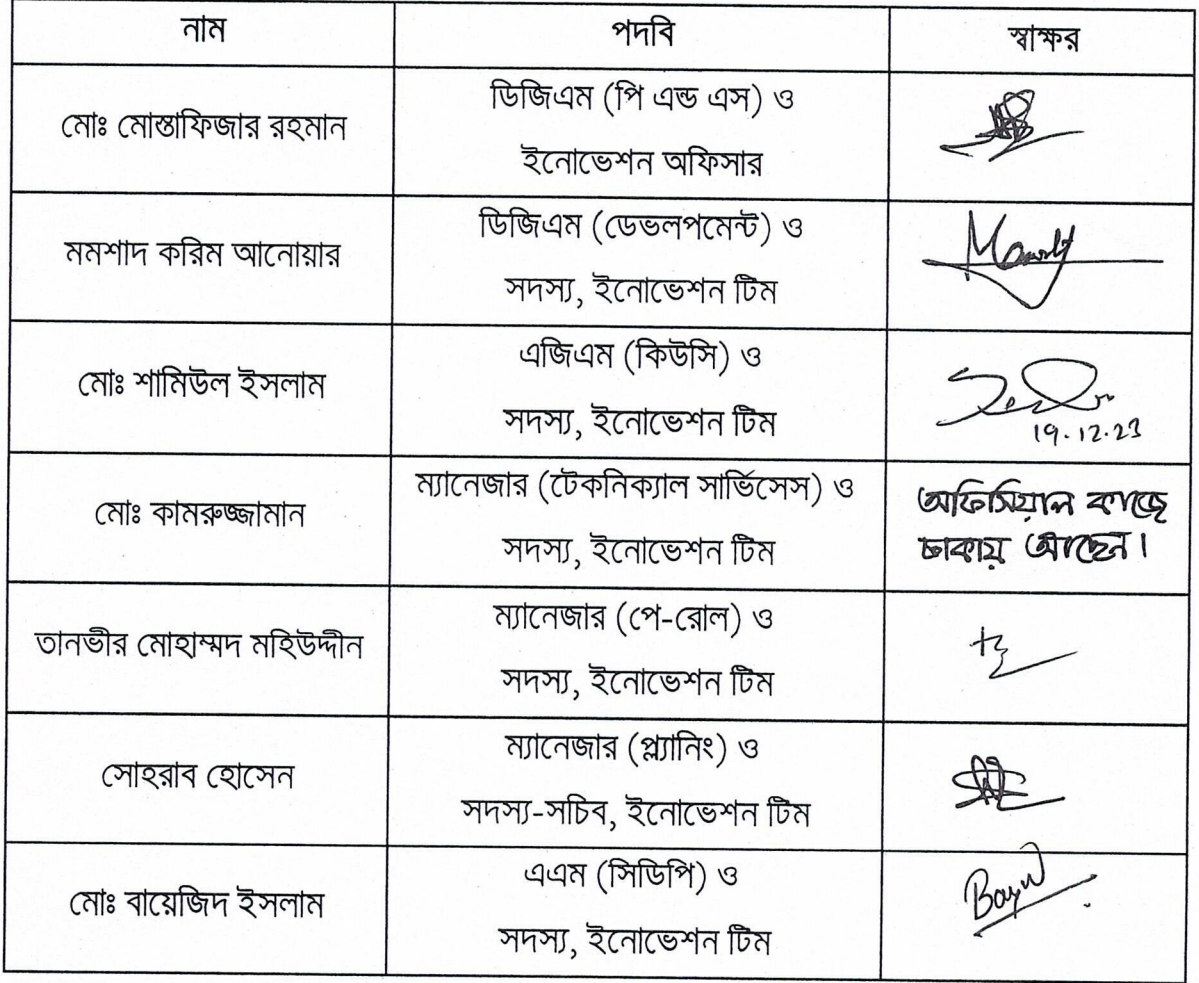 নাম পদবি স্বাক্ষর
মোঃ মোস্তাফিজার রহমান
ডিজিএম (পি এন্ড এস) ও
ইনোভেশন অফিসার
মমশাদ করিম আনোয়ার
ডিজিএম (ডেভলপমেন্ট) ও
সদস্য, ইনোভেশন টিম
মোঃ শামিউল ইসলাম
এজিএম (কিউসি) ও
সদস্য, ইনোভেশন টিম
19.12.23
মোঃ কামরুজ্জামান
ম্যানেজার (টেকনিক্যাল সার্ভিসেস) ও
সদস্য, ইনোভেশন টিম
অফিসিয়াল কাজে
ঢাকায় আছেন।
তানভীর মোহাম্মদ মহিউদ্দীন
ম্যানেজার (পে-রোল) ও
সদস্য, ইনোভেশন টিম
সোহরাব হোসেন
ম্যানেজার (প্ল্যানিং) ও
সদস্য-সচিব, ইনোভেশন টিম
মোঃ বায়েজিদ ইসলাম
এএম (সিডিপি) ও
সদস্য, ইনোভেশন টিম